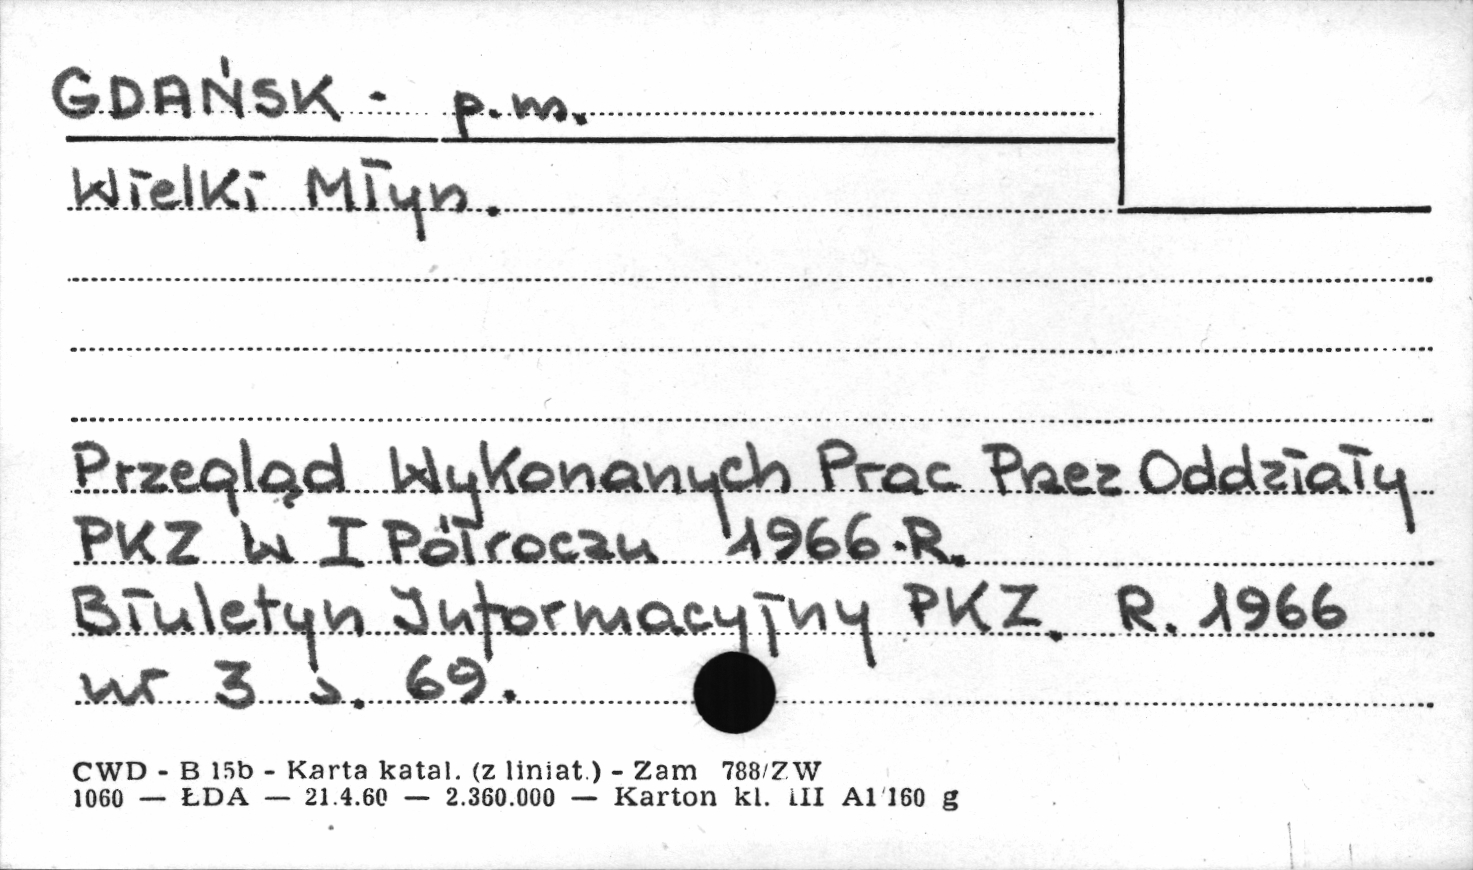 GDAŃSK - p.m.
Wielki Młyn.
Przegląd Wykonanych Prac Przez Oddziały
PKZ w I Półroczu 1966.R.
Biuletyn Informacyjny PKZ. R. 1966
nr 3 s. 69.
CWD - B 15b - Karta katal. (z liniat.) - Zam 788/ZW
1060 — ŁDA — 21.4.60 — 2.360.000 — Karton kl. III A1/160 g